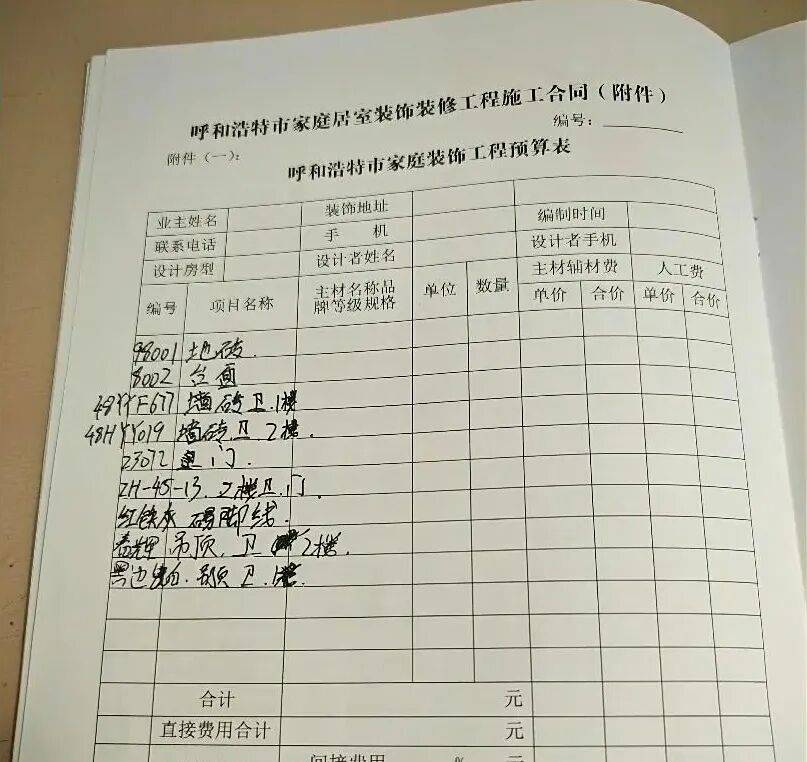 呼和浩特市家庭居室装饰装修工程施工合同（附件）
编号：
附件（一）：
呼和浩特市家庭装饰工程预算表
业主姓名 装饰地址
联系电话 手 机 编制时间
设计房型 设计者姓名 设计者手机
编号 项目名称 主材名称品牌等级规格 单位 数量 主材辅材费 人工费
单价 合价 单价 合价
98001 地砖.
8002 台面
48YYF677 墙砖卫.1楼
48HYY019 墙砖卫.2楼.
23072 门.
ZH-45-13. 2楼卫.门.
红铁灰 踢脚线.
吊顶.卫 2楼.
黑边 吊顶 卫.
合计 元
直接费用合计 元
间接费用 % 元